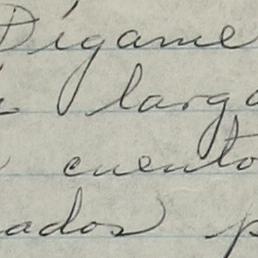 Dígame
larga
cuento
ados p